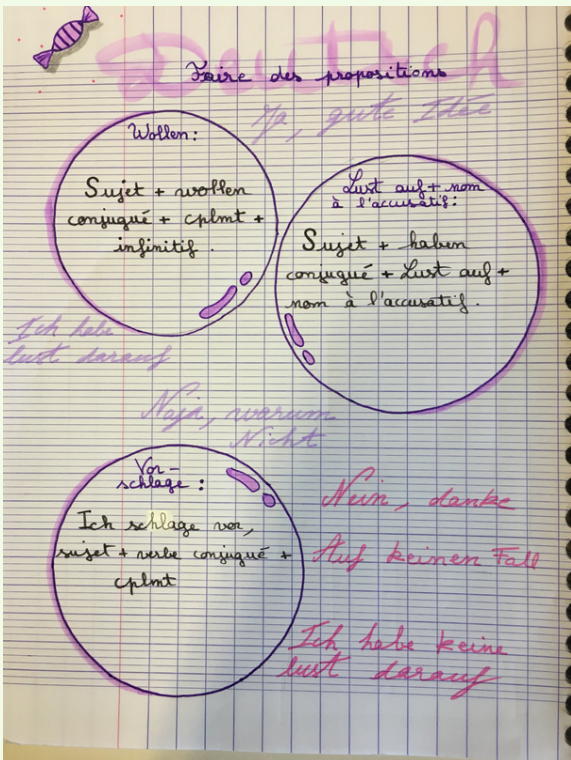 Deutsch
Faire des propositions
Ja, gute Idée
Wollen:
Sujet + wollen
conjugué + cplmt +
infinitif.
Lust auf + nom
à l'accusatif:
Sujet + haben
conjugué + Lust auf +
nom à l'accusatif.
Ich habe
lust darauf
Naja, warum
Nicht
Vor-
schlage:
Ich schlage vor,
sujet + verbe conjugué +
cplmt
Nein, danke
Auf keinen Fall
Ich habe keine
lust darauf